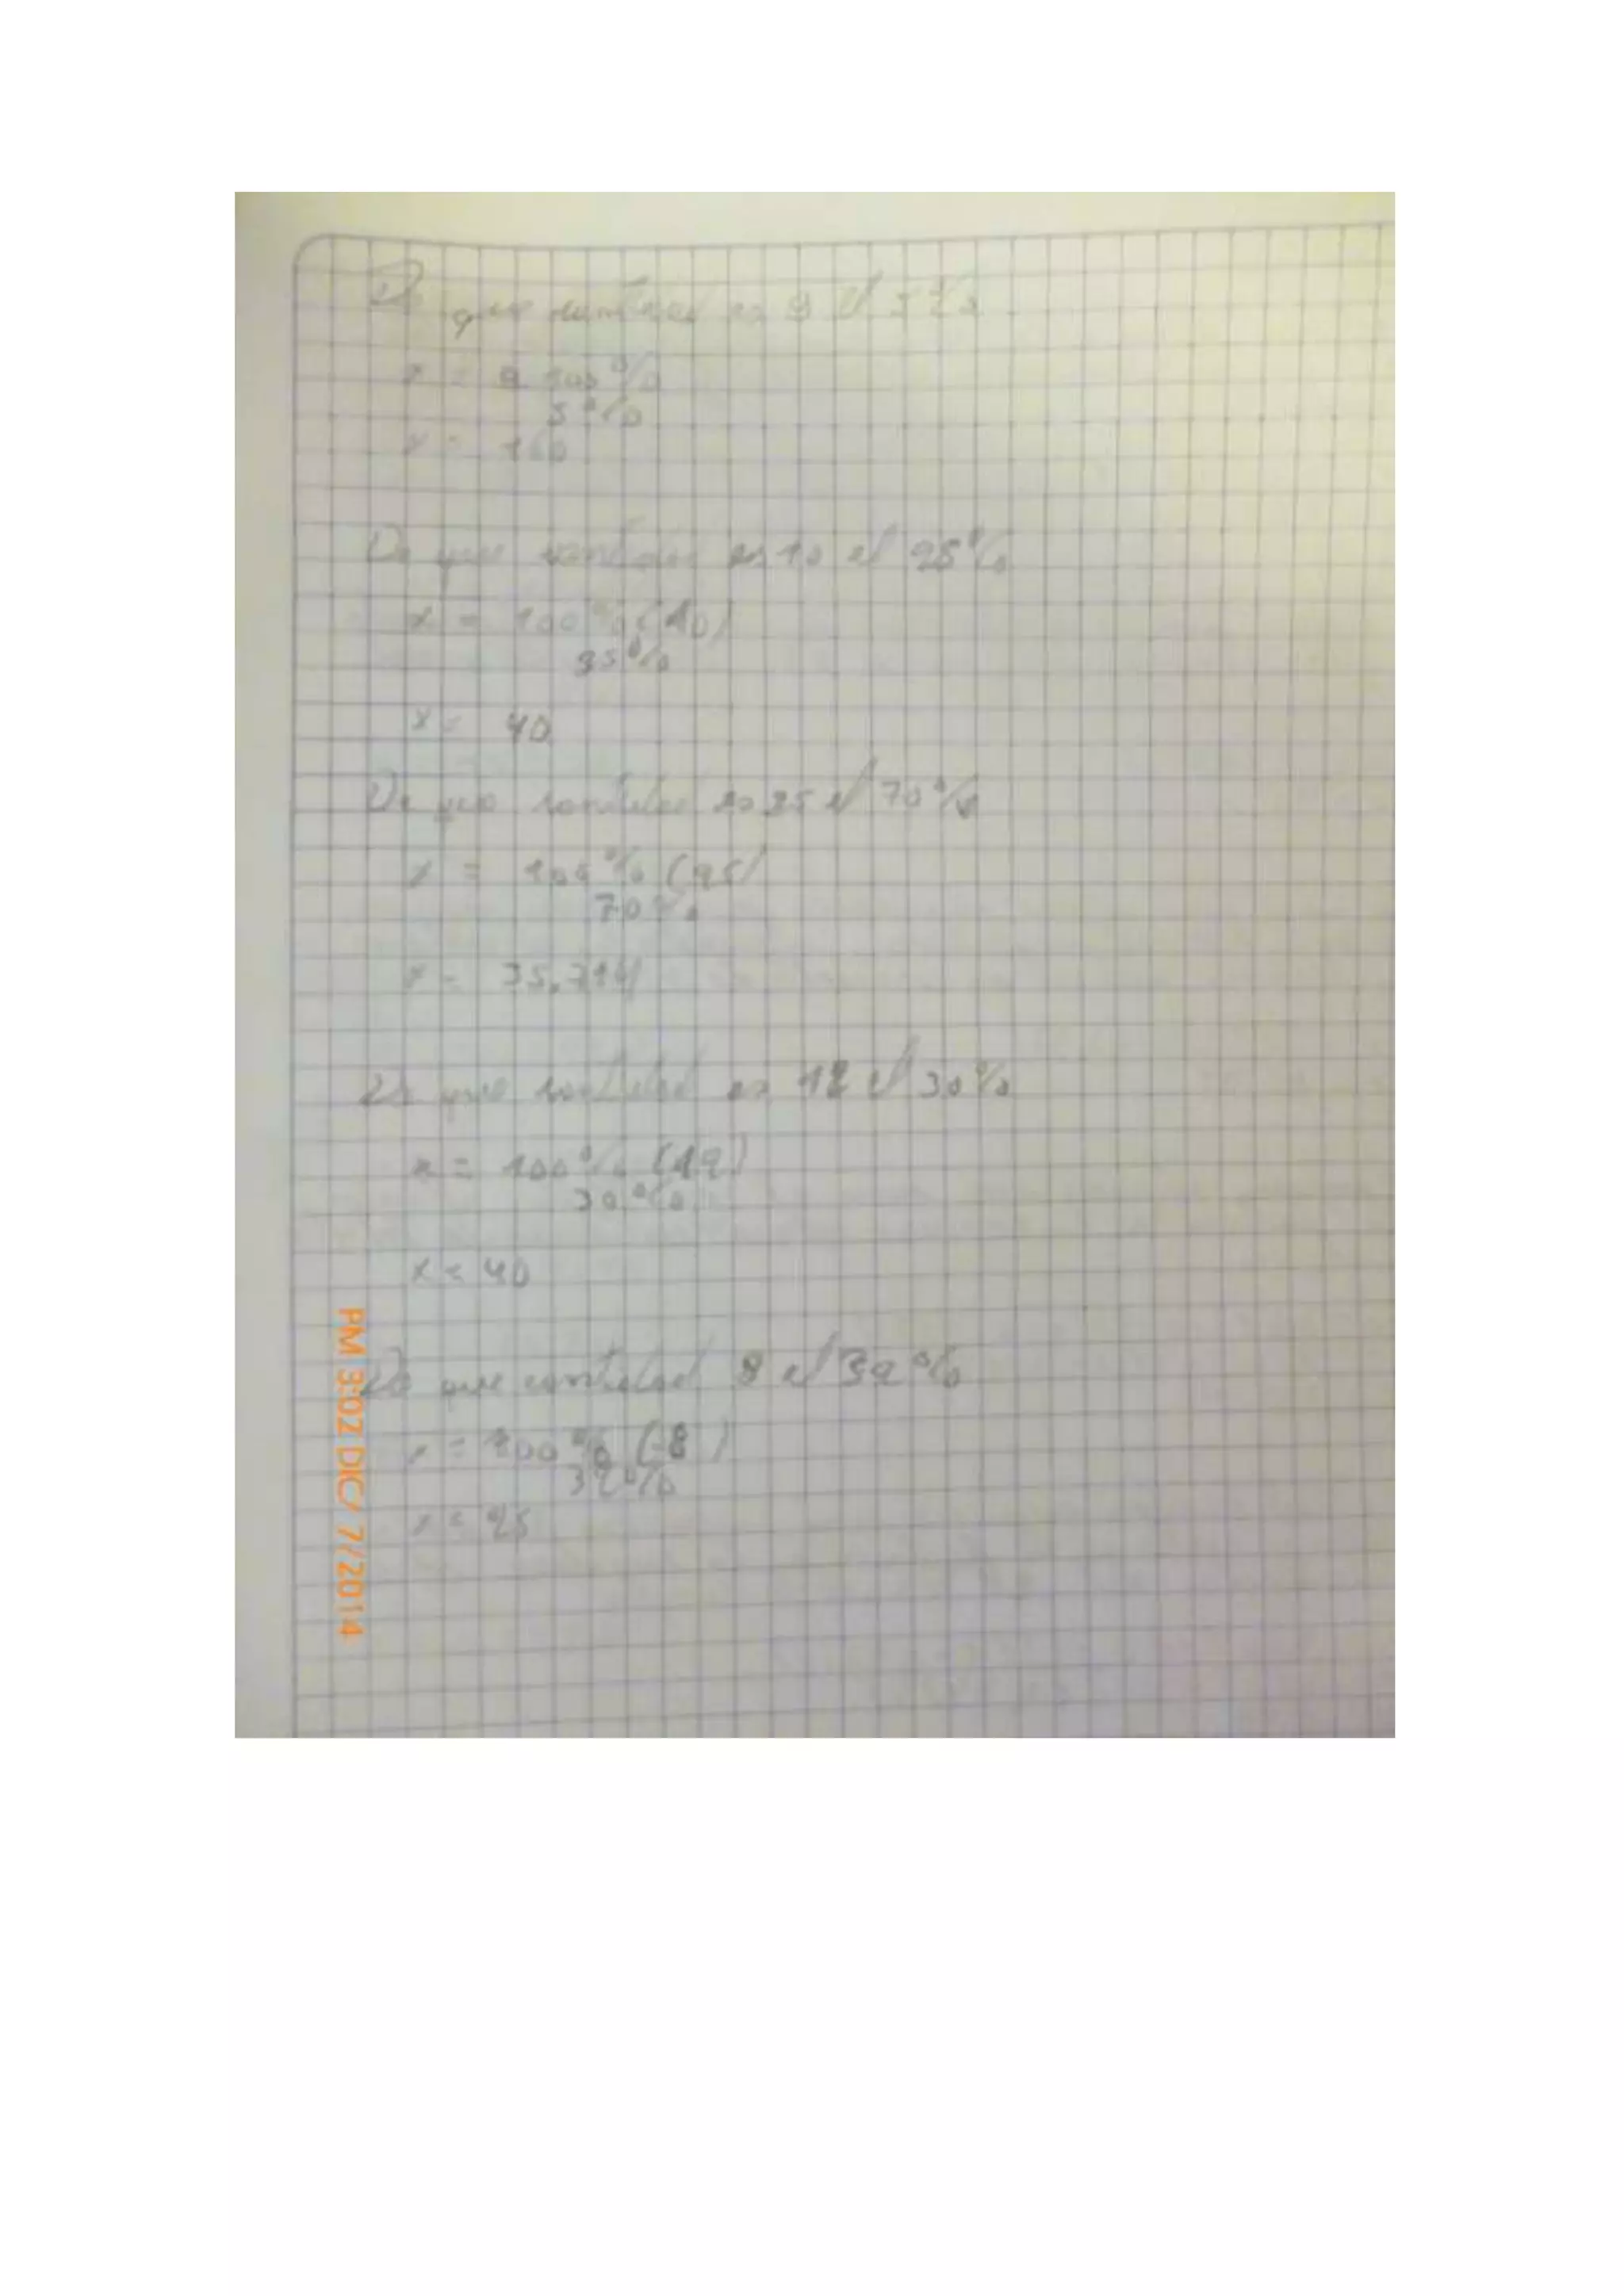 De que cantidad es 8 el 5%
x = 8 100%
5%
x = 160
De que cantidad es 10 el 25%
x = 100% (10)
25%
x = 40
De que cantidad es 25 el 70%
x = 100% (25)
70%
x = 35.714
De que cantidad es 12 el 30%
x = 100% (12)
30%
x = 40
De que cantidad 8 el 32%
x = 100% (8)
32%
x = 25
PM 3:02 DIC/ 7/2014